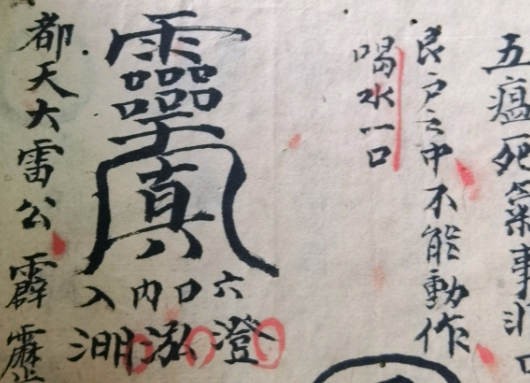 五瘟死
良户之中不能動作
喝水一口
真
六
口
内
入
澄
泓
都天大雷公霹靂